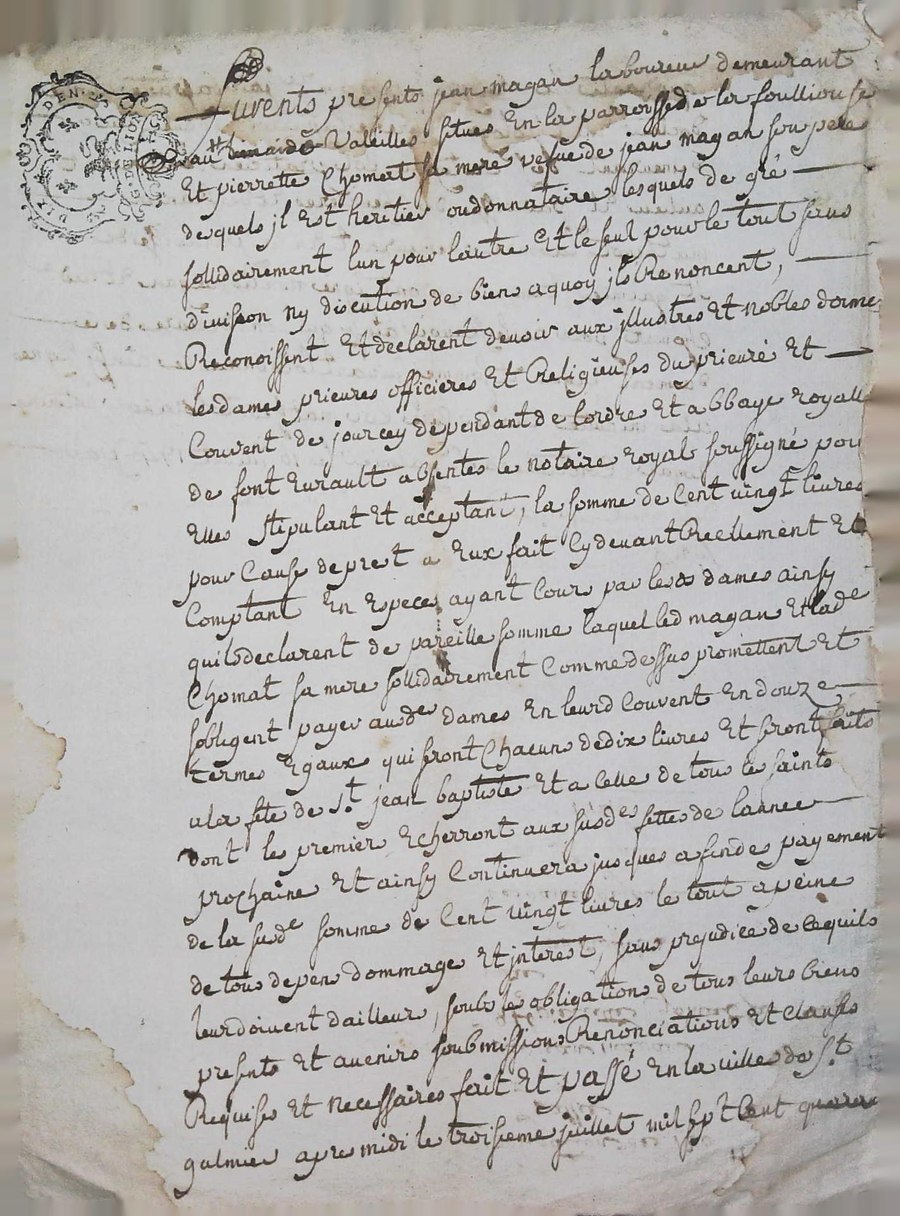 DIX DEN. G. DE LION
furents presents jean magan laboureur demeurant
au Valeilles situés En la parroisse de la foulliouse
Et pierrette Chomert sa mere vefue de jean magan son pere
desquels jl Est heritier oudonnataire lesquels de gré
sollidairement lun pour lautre Et le seul pour le tout sans
diuision ny discution de biens a quoy jls Renoncent,
Reconoissent Et declarent deuoir aux jllustres Et nobles dames
les dames prieures officieres Et Religieuses du prieuré Et
Couvent de jourcey dependant de lordre Et abbaye royalle
de font Eurault absentes le notaire royal soussigné pour
Elles stipulant Et acceptant, la somme de Cent vingt liures
pour Cause de prest a Eux fait Cy deuant Reellement Et
Comptant En Especes ayant Cours par lesds dames ainsy
quils declarent de pareille somme laquel led magan Et lade
Chomat sa mere sollidairement Comme dessus promettent Et
sobligent payer ausdes dames En leurd Couvent En douze
termes Egaux qui seront Chacuns de dix liures Et seront faits
a la fête de St. jean baptiste Et a Celle de tous les saints
dont les premier Echerront aux susdes fettes de lannée
prochaine Et ainsy Continuera jusques a fin des payement
de la susde somme de Cent vingt liures le tout a peine
de tous depens dommage Et jnterest, sans prejudice de Cequils
leur doivent dailleurs, soubs les obligations de tous leurs biens
presents Et avenirs soubmissions Renonciations Et Clauses
Requises Et necessaires fait Et passé En la ville de St.
galmier apres midi le troisieme juillet mil sept Cent